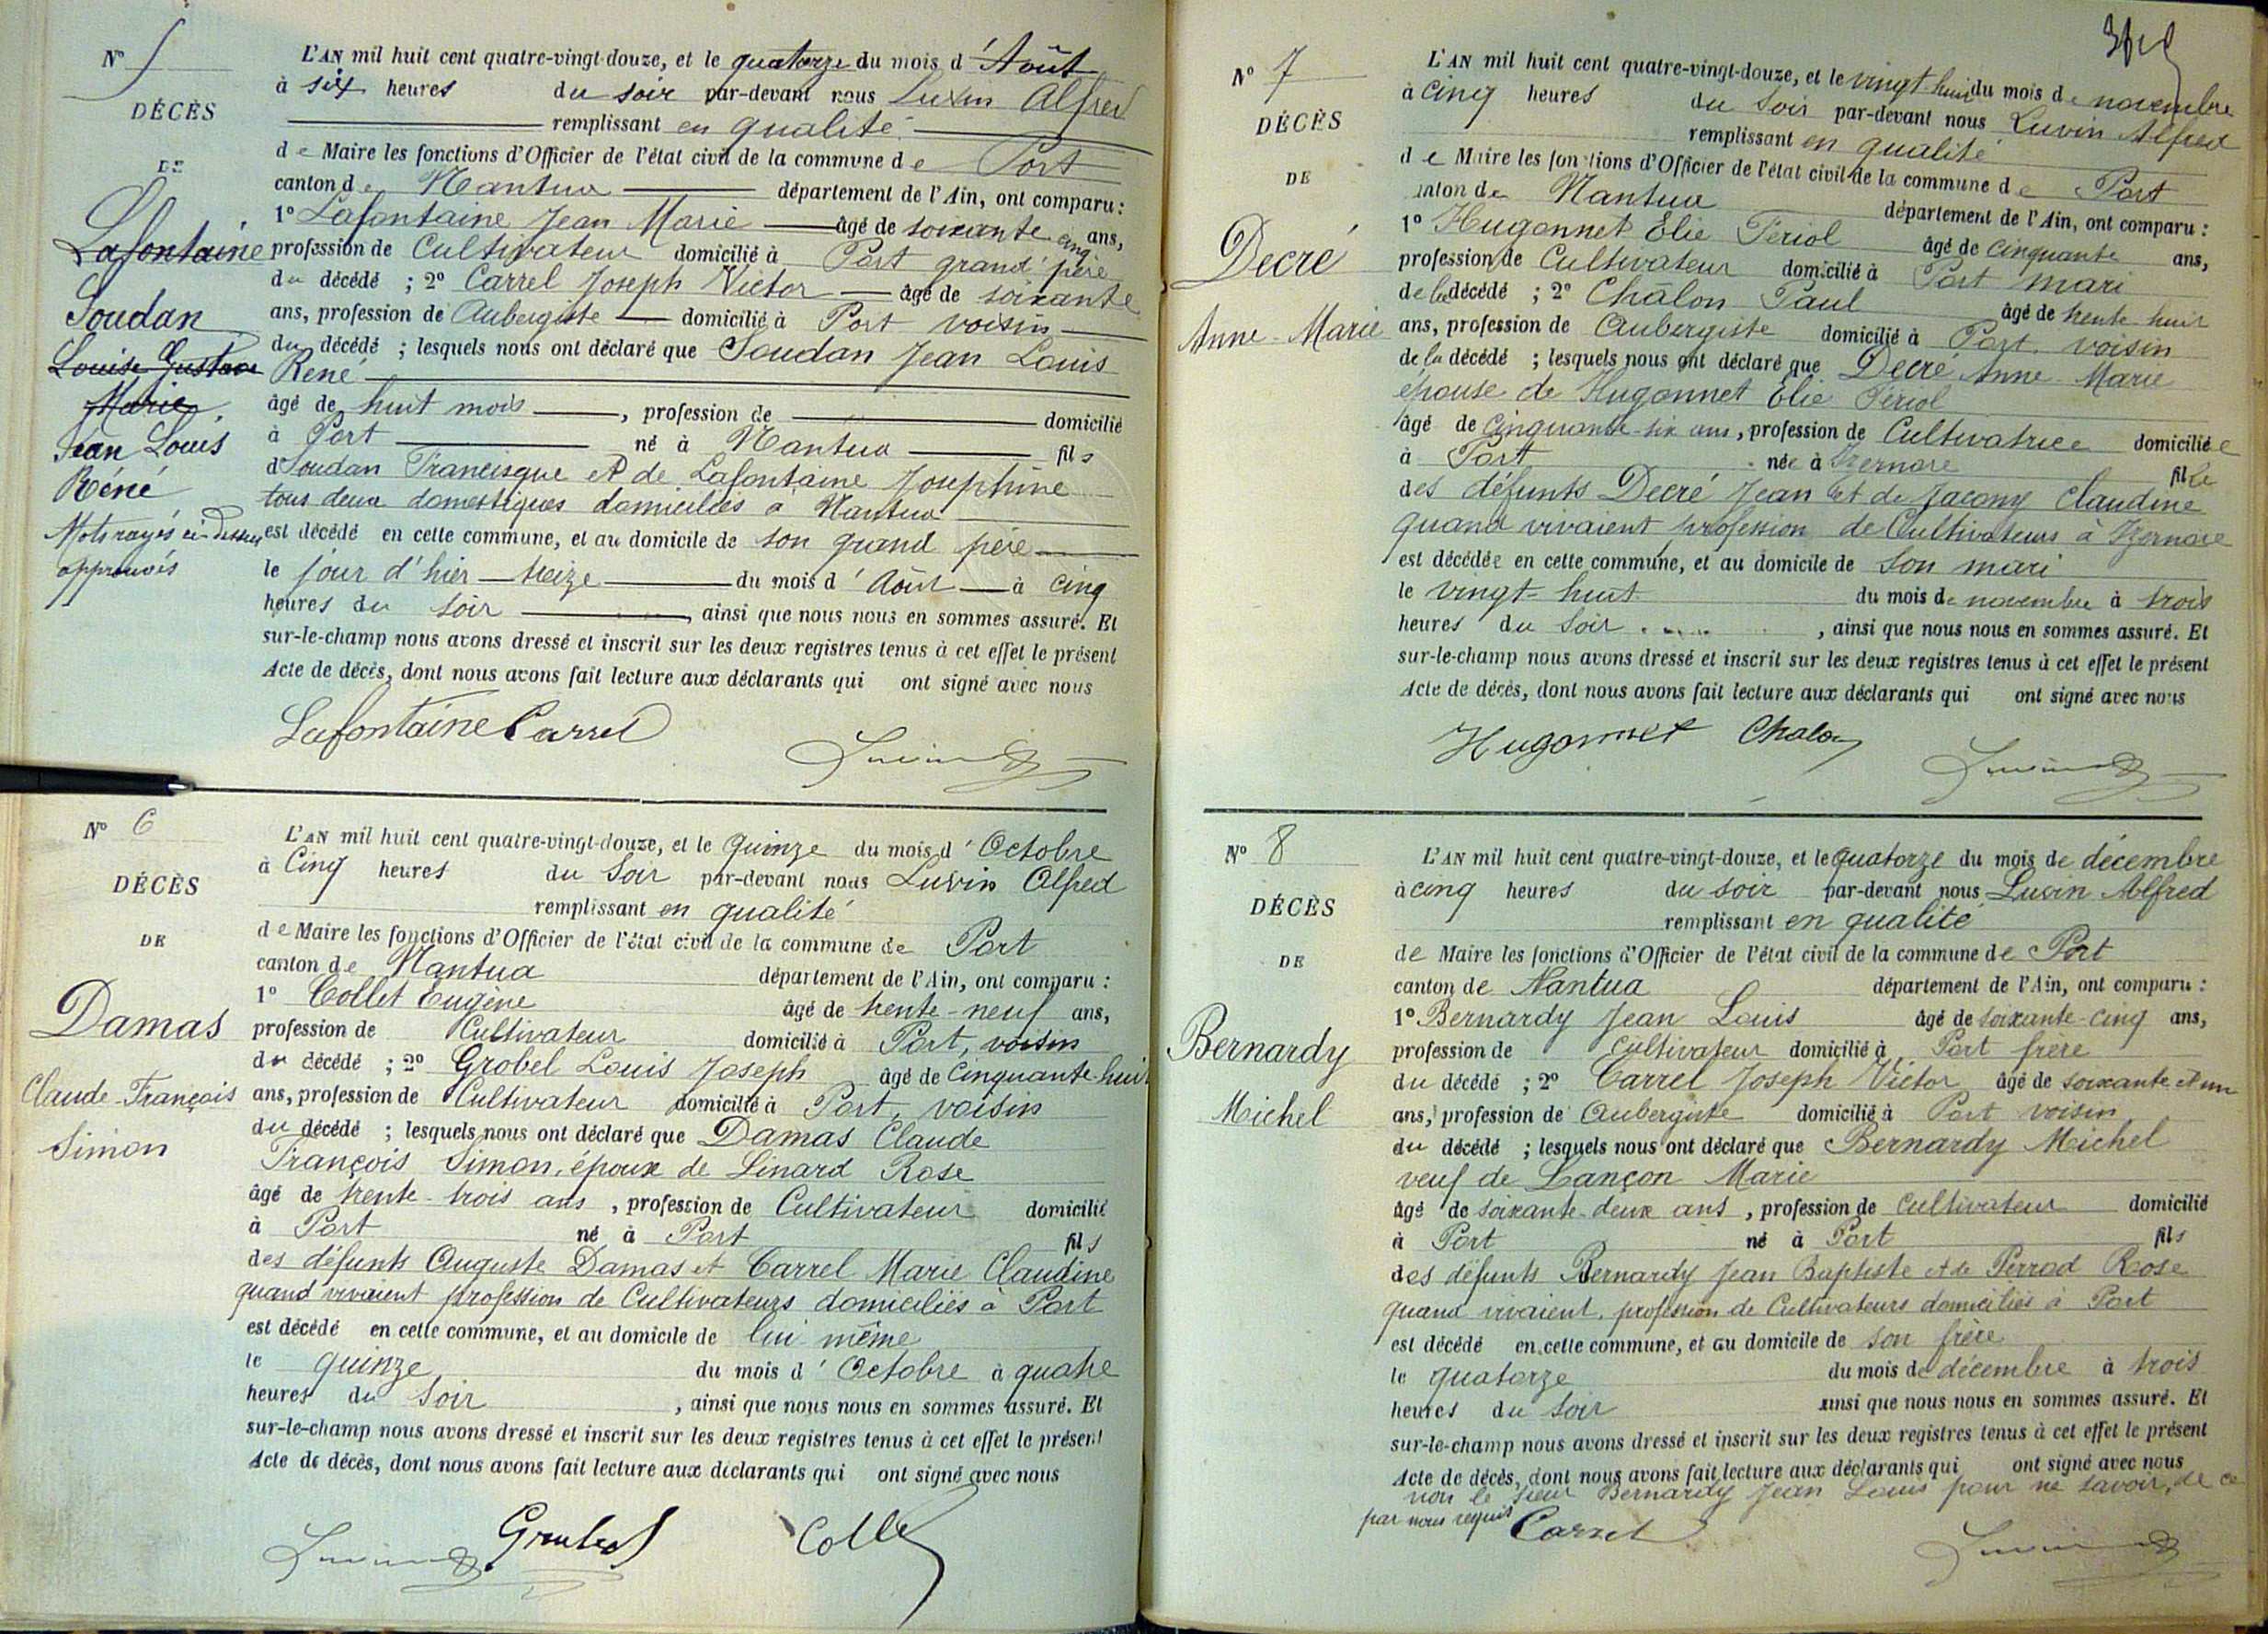 N° 5
DÉCÈS
DE
Lafontaine
Soudan
Louise Gustave
Marie
Jean Louis
Réné
Mots rayés ci-dessus
approuvés
L'AN mil huit cent quatre-vingt-douze, et le quatorze du mois d'Août
à six heures du soir par-devant nous Luvin Alfred
remplissant en qualité
de Maire les fonctions d'Officier de l'état civil de la commune de Port
canton de Nantua département de l'Ain, ont comparu :
1° Lafontaine Jean Marie âgé de soixante cinq ans,
profession de Cultivateur domicilié à Port grand père
du décédé ; 2° Carrel Joseph Victor âgé de soixante
ans, profession de Aubergiste domicilié à Port voisin
du décédé ; lesquels nous ont déclaré que Soudan Jean Louis
René
âgé de huit mois, profession de domicilié
à Port né à Nantua fils
d Soudan Francisque et de Lafontaine Joséphine
tous deux domestiques domiciliés à Nantua
est décédé en cette commune, et au domicile de son grand père
le jour d'hier treize du mois d'Août à cinq
heures du soir, ainsi que nous nous en sommes assuré. Et
sur-le-champ nous avons dressé et inscrit sur les deux registres tenus à cet effet le présent
Acte de décès, dont nous avons fait lecture aux déclarants qui ont signé avec nous
Lafontaine Carrel
Luvin
N° 6
DÉCÈS
DE
Damas
Claude-François
Simon
L'AN mil huit cent quatre-vingt-douze, et le quinze du mois d'Octobre
à Cinq heures du Soir par-devant nous Luvin Alfred
remplissant en qualité
de Maire les fonctions d'Officier de l'état civil de la commune de Port
canton de Nantua département de l'Ain, ont comparu :
1° Collet Eugène âgé de trente-neuf ans,
profession de Cultivateur domicilié à Port, voisin
du décédé ; 2° Grobel Louis Joseph âgé de Cinquante-huit
ans, profession de Cultivateur domicilié à Port, voisin
du décédé ; lesquels nous ont déclaré que Damas Claude
François Simon, époux de Linard Rose
âgé de trente-trois ans, profession de Cultivateur domicilié
à Port né à Port fils
des défunts Auguste Damas et Carrel Marie Claudine
quand vivaient profession de Cultivateurs domiciliés à Port
est décédé en cette commune, et au domicile de lui même
le quinze du mois d'Octobre à quatre
heures du Soir, ainsi que nous nous en sommes assuré. Et
sur-le-champ nous avons dressé et inscrit sur les deux registres tenus à cet effet le présent
Acte de décès, dont nous avons fait lecture aux déclarants qui ont signé avec nous
Luvin Grobel Collet
N° 7
DÉCÈS
DE
Decré
Anne-Marie
L'AN mil huit cent quatre-vingt-douze, et le vingt-huit du mois de novembre
à Cinq heures du Soir par-devant nous Luvin Alfred
remplissant en qualité
de Maire les fonctions d'Officier de l'état civil de la commune de Port
canton de Nantua département de l'Ain, ont comparu :
1° Hugonnet Elie Fériol âgé de cinquante ans,
profession de Cultivateur domicilié à Port mari
de la décédé ; 2° Châlon Paul âgé de trente-huit
ans, profession de Aubergiste domicilié à Port, voisin
de la décédé ; lesquels nous ont déclaré que Decré Anne-Marie
épouse de Hugonnet Elie Fériol
âgé de Cinquante-six ans, profession de Cultivatrice domiciliée
à Port née à Izernore fille
des défunts Decré Jean et de Jacomy Claudine
quand vivaient profession de Cultivateurs à Izernore
est décédée en cette commune, et au domicile de son mari
le vingt-huit du mois de novembre à trois
heures du Soir, ainsi que nous nous en sommes assuré. Et
sur-le-champ nous avons dressé et inscrit sur les deux registres tenus à cet effet le présent
Acte de décès, dont nous avons fait lecture aux déclarants qui ont signé avec nous
Hugonnet Chalon
Luvin
N° 8
DÉCÈS
DE
Bernardy
Michel
L'AN mil huit cent quatre-vingt-douze, et le quatorze du mois de décembre
à cinq heures du soir par-devant nous Luvin Alfred
remplissant en qualité
de Maire les fonctions d'Officier de l'état civil de la commune de Port
canton de Nantua département de l'Ain, ont comparu :
1° Bernardy Jean Louis âgé de soixante-cinq ans,
profession de Cultivateur domicilié à Port frère
du décédé ; 2° Carrel Joseph Victor âgé de soixante et un
ans, profession de Aubergiste domicilié à Port voisin
du décédé ; lesquels nous ont déclaré que Bernardy Michel
veuf de Lançon Marie
âgé de soixante-deux ans, profession de Cultivateur domicilié
à Port né à Port fils
des défunts Bernardy Jean Baptiste et de Perrod Rose
quand vivaient, profession de Cultivateurs domiciliés à Port
est décédé en cette commune, et au domicile de son frère
le quatorze du mois de décembre à trois
heures du soir ainsi que nous nous en sommes assuré. Et
sur-le-champ nous avons dressé et inscrit sur les deux registres tenus à cet effet le présent
Acte de décès, dont nous avons fait lecture aux déclarants qui ont signé avec nous
non le sieur Bernardy Jean Louis pour ne savoir, de ce
par nous requis Carrel
Luvin